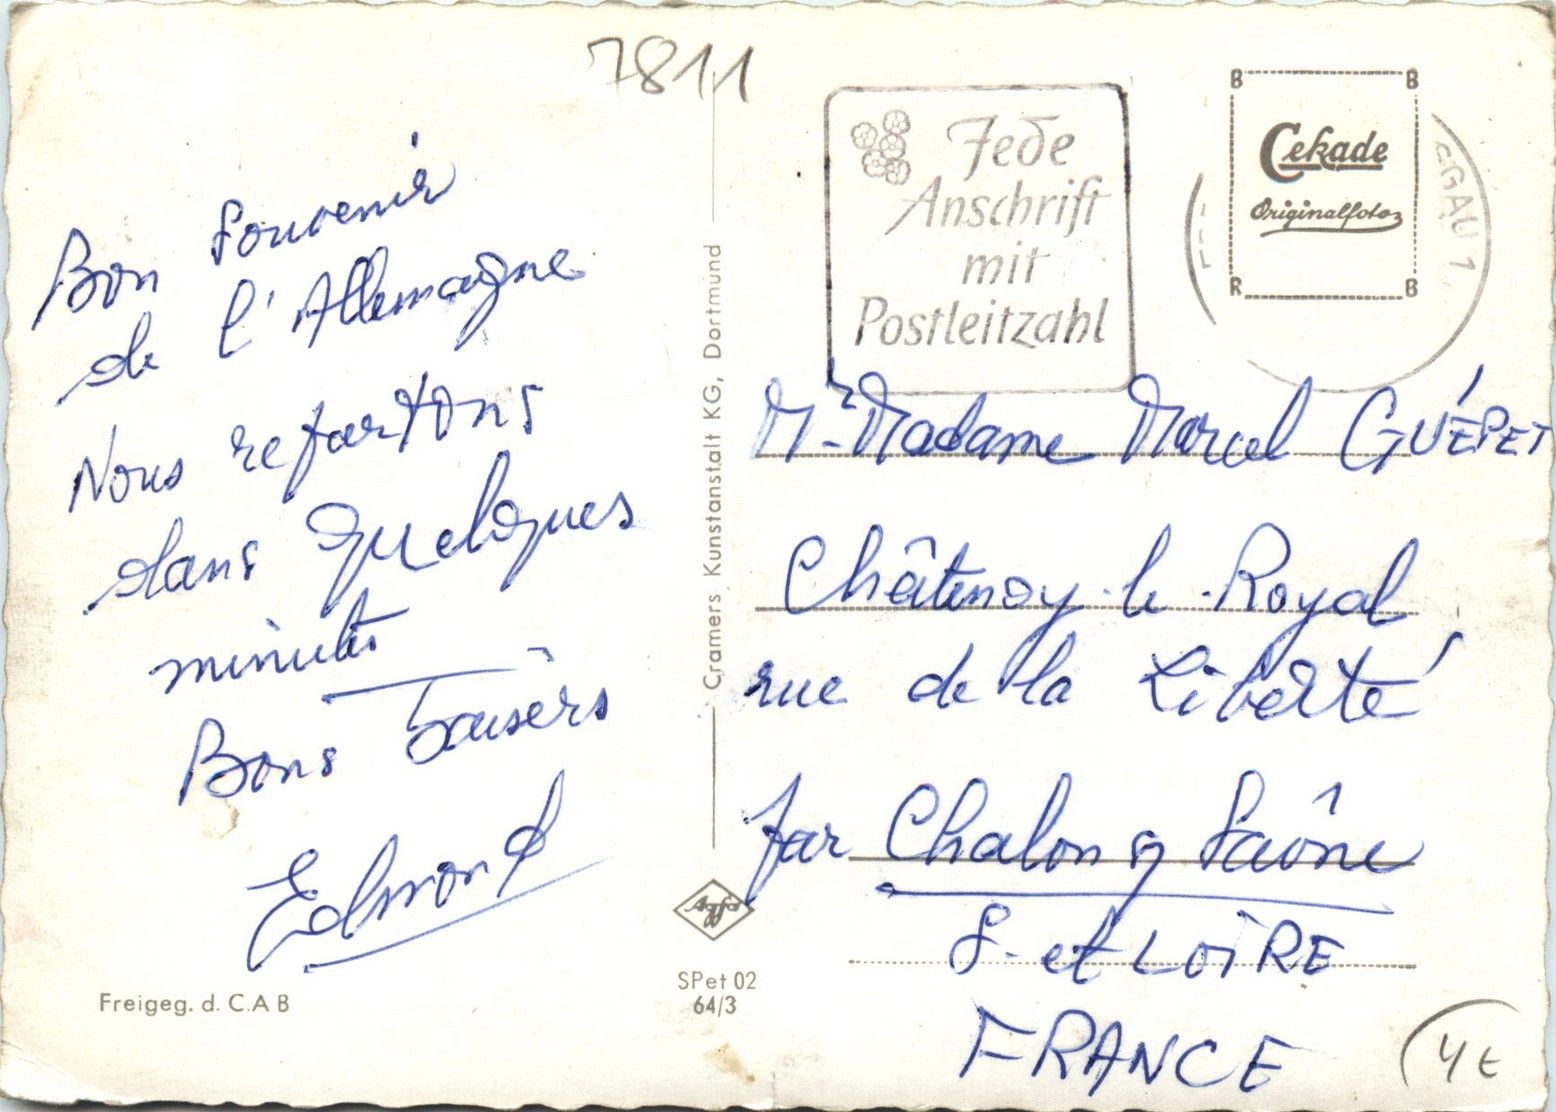 7811
Bon Souvenir
de l'Allemagne
Nous repartons
dans quelques
minutes
Bons baisers
Edmond
Freigeg. d. C.A B
Cramers Kunstanstalt KG, Dortmund
Agfa
SPet 02
64/3
Jede
Anschrift
mit
Postleitzahl
B B
Cekade
Originalfoto
R B
GAU 1
Mr Madame Marcel GUÉPET
Châtenoy-le-Royal
rue de la Liberté
par Chalon s/ Saône
S.-et LOIRE
FRANCE